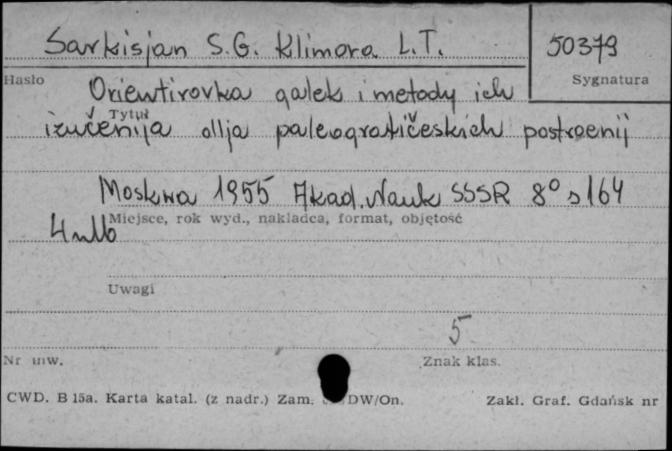 Sarkisjan S.G. Klimova L.T. 50379
Hasło Sygnatura
Orientirovka galek i metody ich
Tytuł
izučenija dlja paleografičeskich postroenij
Moskwa 1955 Akad. Nauk SSSR 8° s 164
Miejsce, rok wyd., nakładca, format, objętość
4 nlb
Uwagi
5
Nr inw. Znak klas.
CWD. B 15a. Karta katal. (z nadr.) Zam. DW/On. Zakł. Graf. Gdańsk nr